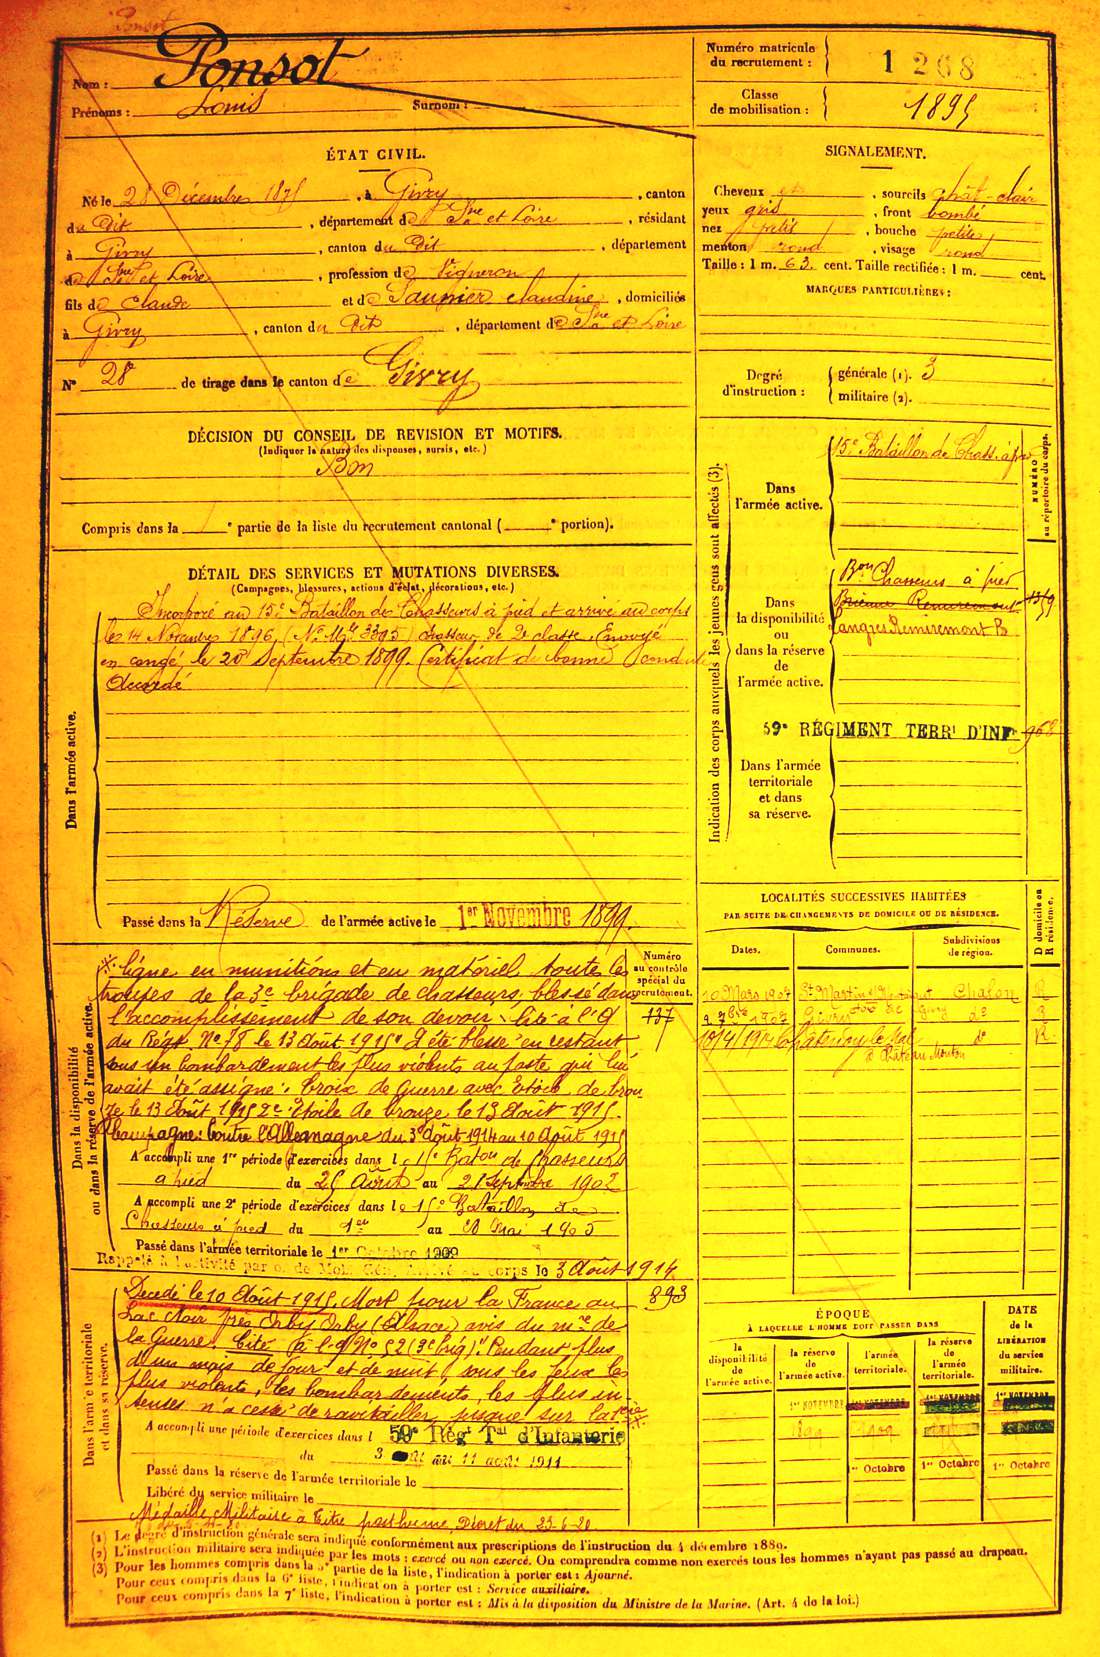 Ponsot
Nom : Ponsot
Prénoms : Louis Surnom :
Numéro matricule du recrutement : 1268
Classe de mobilisation : 1895
ÉTAT CIVIL.
Né le 28 Décembre 1875, à Givry, canton
du dit, département de Sne et Loire, résidant
à Givry, canton du dit, département
de Sne et Loire, profession de Vigneron
fils de Claude et de Saunier Claudine, domiciliés
à Givry, canton du dit, département de Sne et Loire
N° 28 de tirage dans le canton de Givry
SIGNALEMENT.
Cheveux et, sourcils chât-clair
yeux gris, front bombé
nez petit, bouche petite
menton rond, visage rond
Taille : 1 m. 63 cent. Taille rectifiée : 1 m. cent.
MARQUES PARTICULIÈRES :
Degré d'instruction : générale (1). 3
militaire (2).
DÉCISION DU CONSEIL DE REVISION ET MOTIFS.
(Indiquer la nature des dispenses, sursis, etc.)
Bon
Compris dans la e partie de la liste du recrutement cantonal ( e portion).
DÉTAIL DES SERVICES ET MUTATIONS DIVERSES.
(Campagnes, blessures, actions d'éclat, décorations, etc.)
Dans l'armée active.
Incorporé au 15e Bataillon de Chasseurs à pied et arrivé au corps
le 14 Novembre 1896, (No Mle 3395) chasseur de 2e classe. Envoyé
en congé le 20 Septembre 1899. Certificat de bonne conduite
accordé
Passé dans la Réserve de l'armée active le 1er Novembre 1899.
Indication des corps auxquels les jeunes gens sont affectés (3).
NUMÉRO au répertoire du corps.
Dans l'armée active.
15e Bataillon de Chass. à pied
Dans la disponibilité ou dans la réserve de l'armée active.
Bon Chasseurs à pied
Langres Remiremont B
59e RÉGIMENT TERRl D'INFie 968
Dans l'armée territoriale et dans sa réserve.
LOCALITÉS SUCCESSIVES HABITÉES
PAR SUITE DE CHANGEMENTS DE DOMICILE OU DE RÉSIDENCE.
D domicile ou R résidence.
Dates. Communes. Subdivisions de région.
10 Mars 1907 St Martin Chalon R
2 7bre 1907 Givry do
10/4/1910 do R
Dans la disponibilité ou dans la réserve de l'armée active.
Numéro au contrôle spécial du recrutement.
137
ligne en munitions et en matériel toutes les
troupes de la 3e brigade de chasseurs, blessé dans
l'accomplissement de son devoir. Cité à l'O
du Régt No 78 le 13 Août 1915 " A été blessé en restant
sous un bombardement des plus violents au poste qui lui
avait été assigné". Croix de Guerre avec Etoile de bron
ze le 13 Août 1915 2e Etoile de bronze le 13 Août 1915.
Campagne: Contre l'Allemagne du 3 Août 1914 au 10 Août 1915
A accompli une 1re période d'exercices dans le 15e Baton de Chasseurs
à pied du 25 Août au 21 Septembre 1902
A accompli une 2e période d'exercices dans le 15e Bataillon de
Chasseurs à pied du 1er au 20 Mai 1905
Passé dans l'armée territoriale le 1er Octobre 1909
Rappelé à l'activité par o. de Mob. Gén. Arrivé au corps le 3 Août 1914
Dans l'armée territoriale et dans sa réserve.
893
Décédé le 10 Août 1915. Mort pour la France au
Lac Noir près Orbey (Alsace) avis du me de
la Guerre. Cité à l'O No 52 (3e brig)" Pendant plus
d'un mois de jour et de nuit, sous les feux les
plus violents, les bombardements les plus in-
tenses n'a cessé de ravitailler jusque sur la 1ère
A accompli une période d'exercices dans l 59e Régt Tal d'Infanterie
du 3 août au 11 août 1911
Passé dans la réserve de l'armée territoriale le
Libéré du service militaire le
Médaille Militaire à titre posthume, Décret du 23-6-20
ÉPOQUE
À LAQUELLE L'HOMME DOIT PASSER DANS
la disponibilité de l'armée active. la réserve de l'armée active. l'armée territoriale. la réserve de l'armée territoriale.
DATE de la LIBÉRATION du service militaire.
1er NOVEMBRE 1er NOVEMBRE 1er NOVEMBRE 1er NOVEMBRE
1899 1909
1er Octobre 1er Octobre 1er Octobre
(1) Le degré d'instruction générale sera indiqué conformément aux prescriptions de l'instruction du 4 décembre 1889.
(2) L'instruction militaire sera indiquée par les mots : exercé ou non exercé. On comprendra comme non exercés tous les hommes n'ayant pas passé au drapeau.
(3) Pour les hommes compris dans la 5e partie de la liste, l'indication à porter est : Ajourné.
Pour ceux compris dans la 6e liste, l'indication à porter est : Service auxiliaire.
Pour ceux compris dans la 7e liste, l'indication à porter est : Mis à la disposition du Ministre de la Marine. (Art. 4 de la loi.)